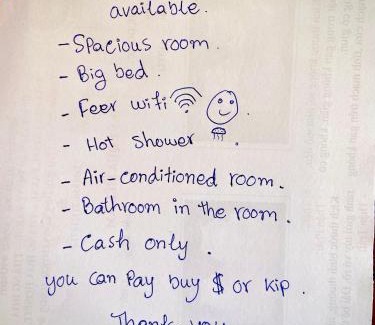 available.
- Spacious room.
- Big bed.
- Feer wifi.
- Hot shower.
- Air-conditioned room.
- Bathroom in the room.
- Cash only.
you can Pay buy $ or kip.
Thank you